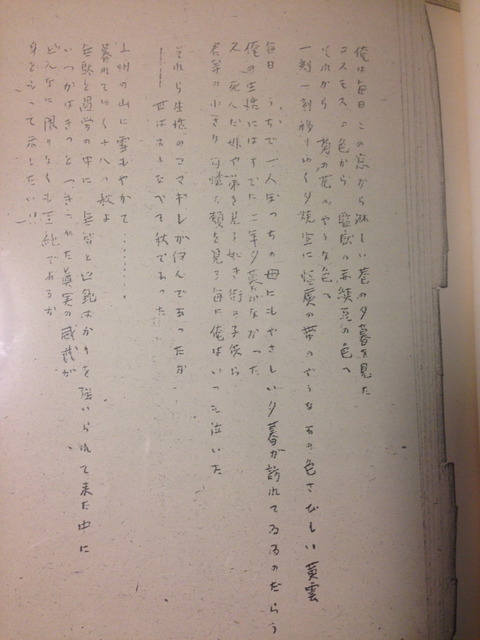 俺は毎日 この窓から淋しい巷の夕暮を見た
コスモスの色から 監獄の赤煉瓦の色へ
それから 菊の花のやうな色へ
一刻一刻移りゆく夕焼空に 帯のやうな 色さびしい 黄雲
毎日 うちで一人ぼっちの母にもやさしい夕暮が訪れてゐるのだらう
俺の生活にはすでに二年夕暮がなかった
又 死んだ妹や弟を見る如き街の子供ら
君等の小さき可憐な顔を見る毎に俺はいつも泣いた
それら生活のコマギレが何んであったか
――世はすべなべて秋であった
上州の山に雪もやがて………
暮れてゆく十八の秋よ
無駄と過労の中に 無智と ばかりを強いられて来た中に
いつかはきっとつきつめた真実の威哉が
どんなに限りなくも至純であるか
身をもって示したい!!